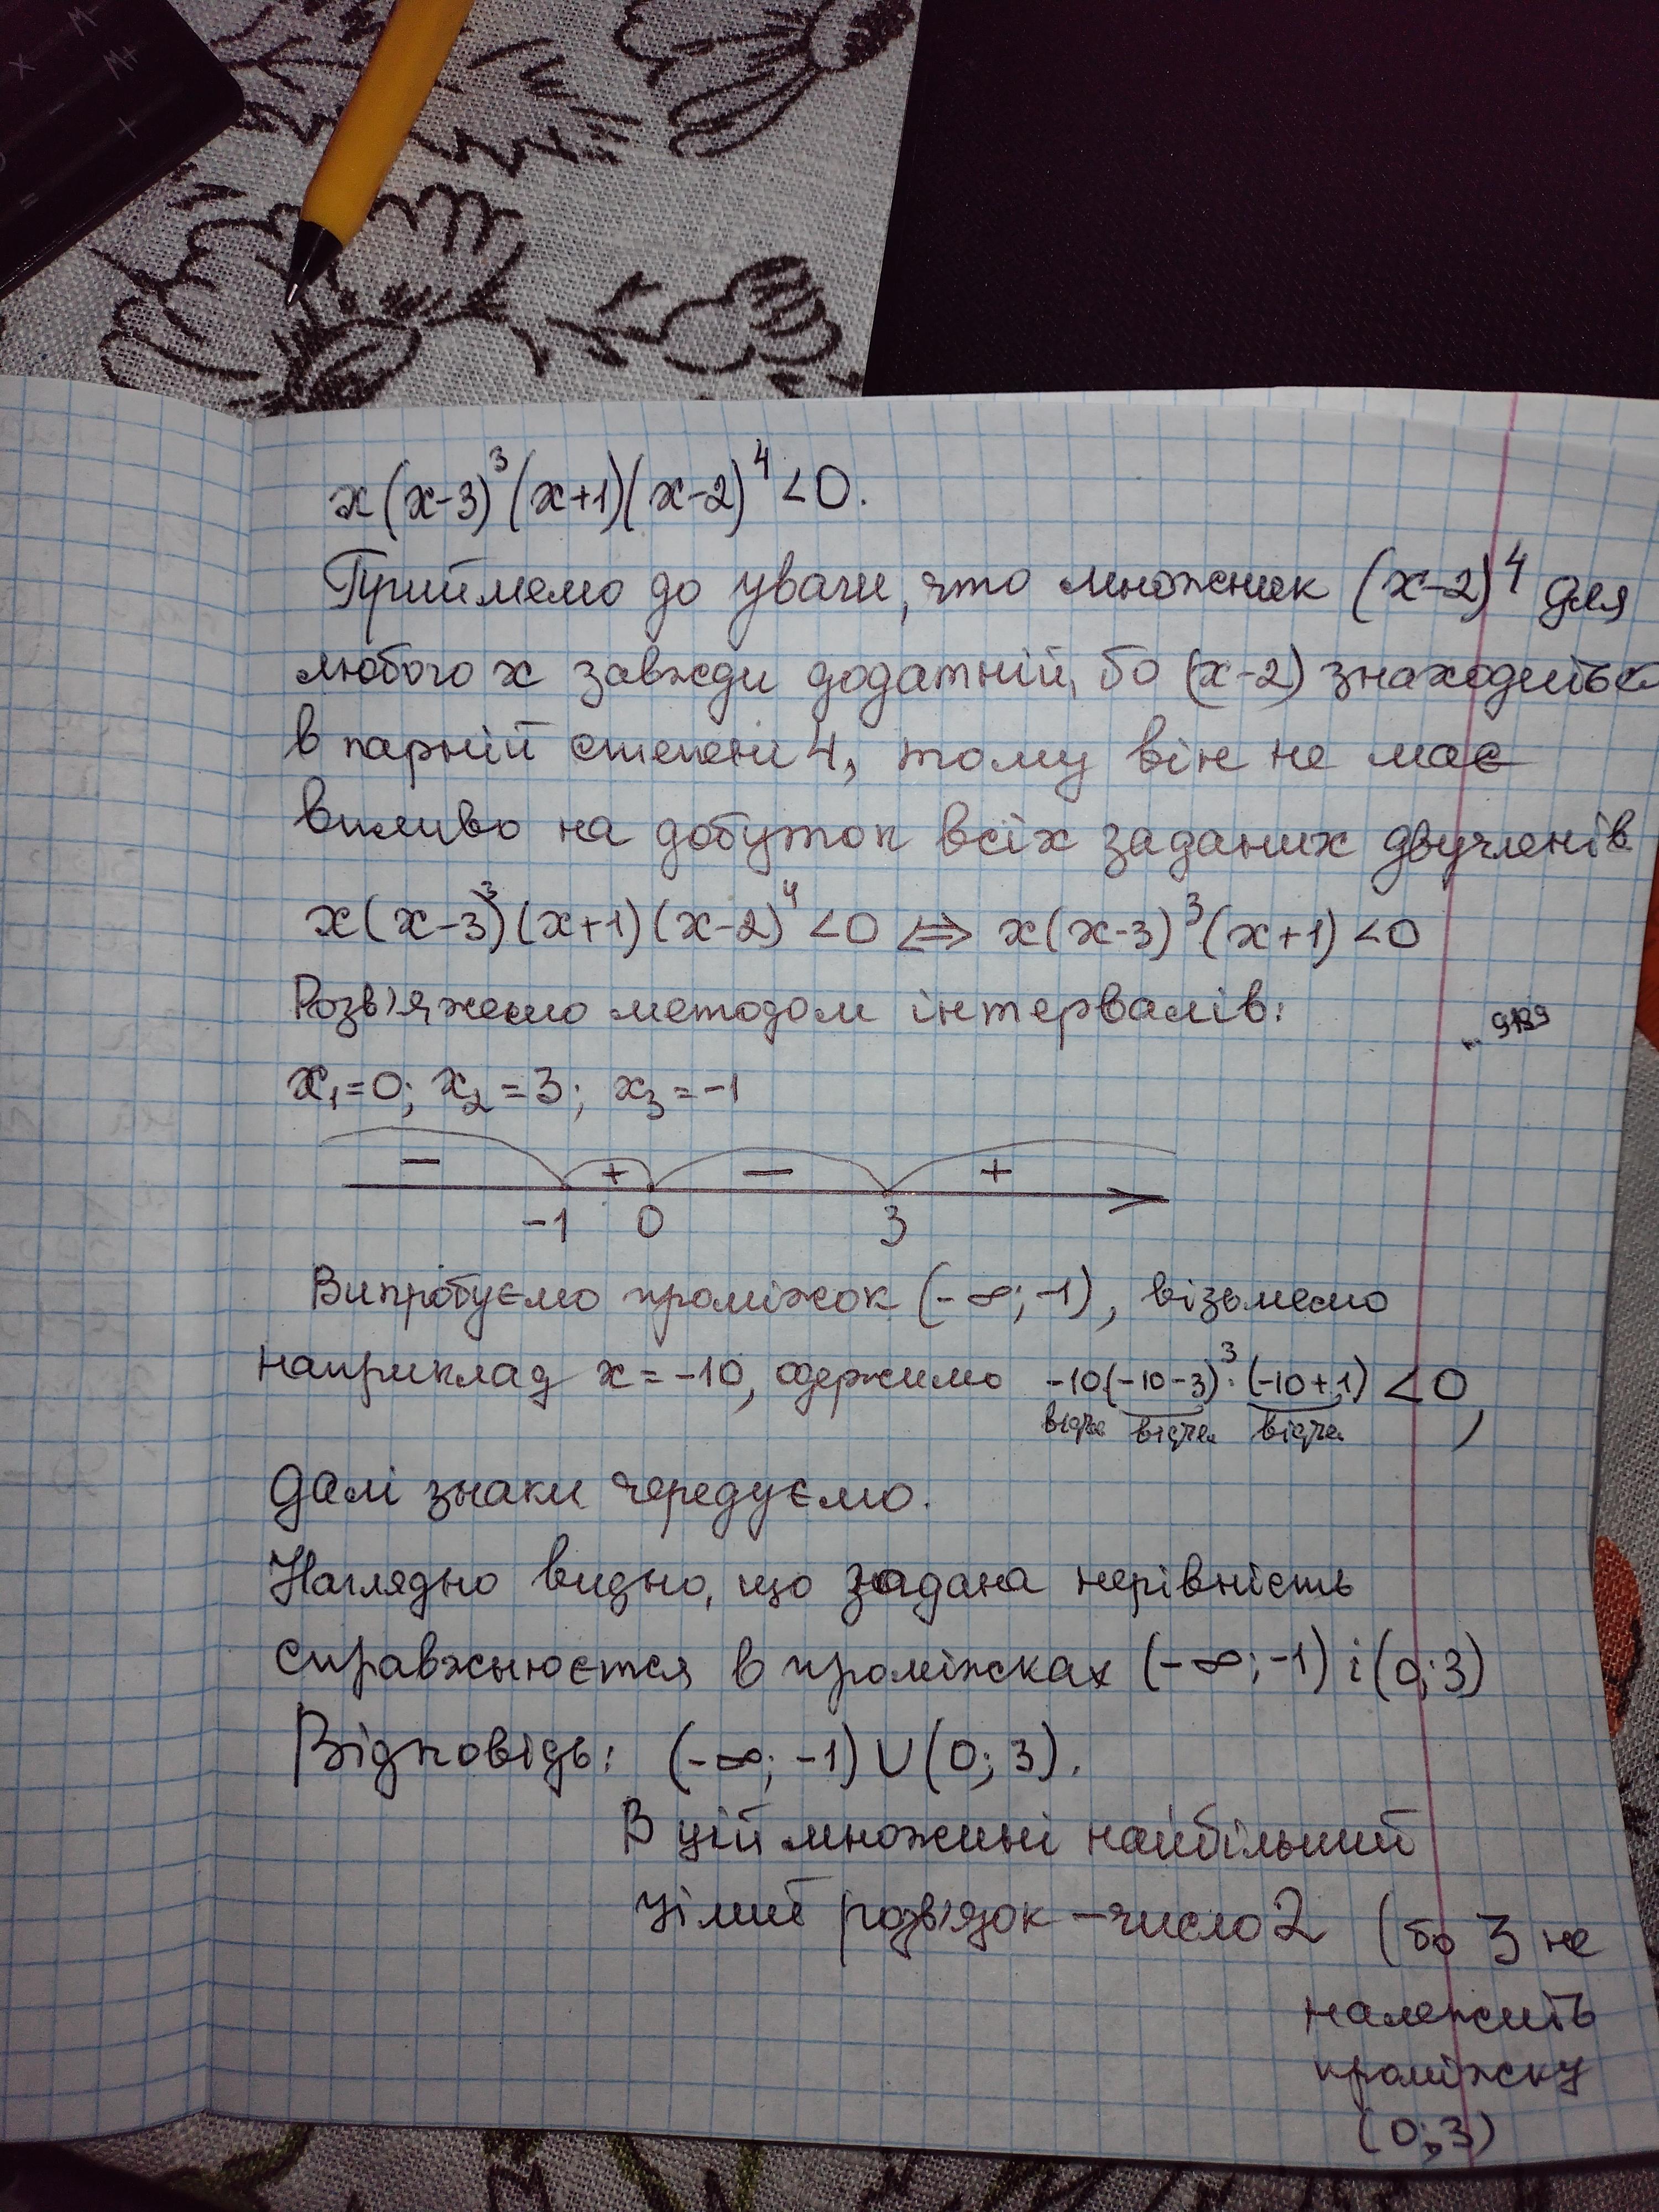 M-
x
M+
+
=
x(x-3)³(x+1)(x-2)⁴<0.
Приймемо до уваги, что множник (x-2)⁴ для
любого x завжди додатній, бо (x-2) знаходиться
в парній степені 4, тому він не має
впливо на добуток всіх заданих двучленів
x(x-3)³(x+1)(x-2)⁴<0 ⇔ x(x-3)³(x+1)<0
Розв'яжемо методом інтервалів:
9139
x₁=0; x₂=3; x₃=-1
− + − +
-1 0 3
Випробуємо проміжок (-∞;-1), візьмемо
наприклад x=-10, одержимо -10(-10-3)³·(-10+1)<0,
відче відче відче
далі знаки чередуємо.
Наглядно видно, що задана нерівність
справжнюється в проміжках (-∞;-1) і (0;3)
Відповідь: (-∞; -1)∪(0; 3).
В цій множині найбільший
цілий розв'язок – число 2 (бо 3 не
належить
проміжку
(0;3)